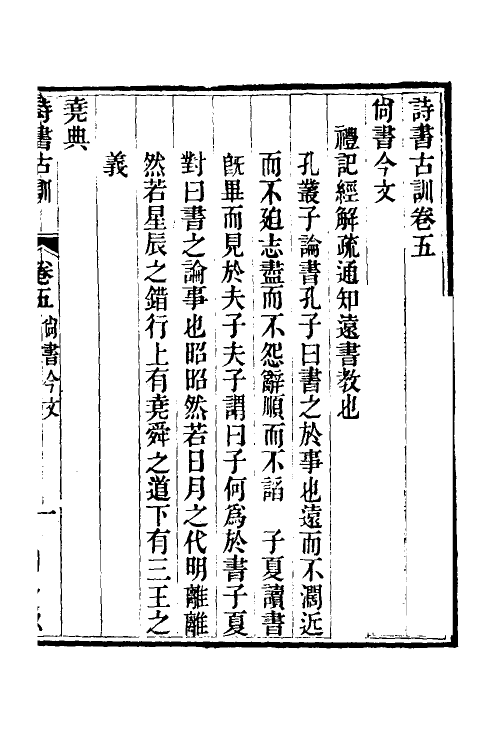 詩書古訓卷五
尙書今文
禮記經解疏通知遠書教也
孔叢子論書孔子曰書之於事也遠而不濶近
而不迫志盡而不怨辭順而不諂　子夏讀書
旣畢而見於夫子夫子謂曰子何爲於書子夏
對曰書之論事也昭昭然若日月之代明離離
然若星辰之錯行上有堯舜之道下有三王之
義
堯典
詩書古訓　卷五尙書今文　一